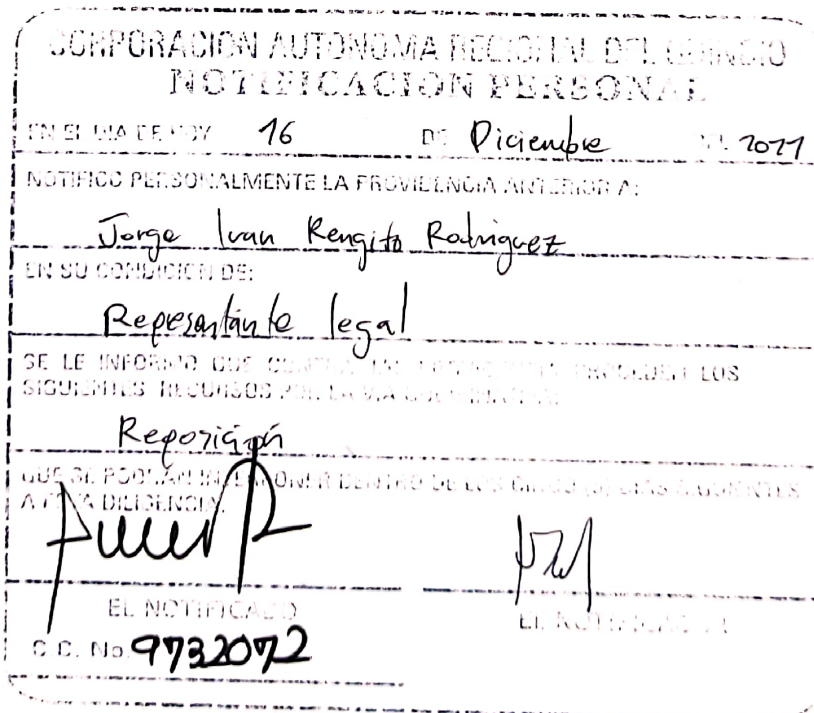 CORPORACION AUTONOMA REGIONAL DEL QUINDIO
NOTIFICACION PERSONAL
EN EL DIA DE HOY 16 DE Diciembre 2021
NOTIFICO PERSONALMENTE LA PROVIDENCIA ANTERIOR A:
Jorge Ivan Rengifo Rodriguez
EN SU CONDICION DE:
Representante legal
SE LE INFORMO QUE CONTRA PROCEDEN LOS
SIGUIENTES RECURSOS POR LA VIA GUBERNATIVA:
Reposición
QUE SE PODRAN INTERPONER DENTRO DE LOS CINCO (5) DIAS SIGUIENTES
A ESTA DILIGENCIA.
EL NOTIFICADO EL NOTIFICADOR
C.C. No. 9732072